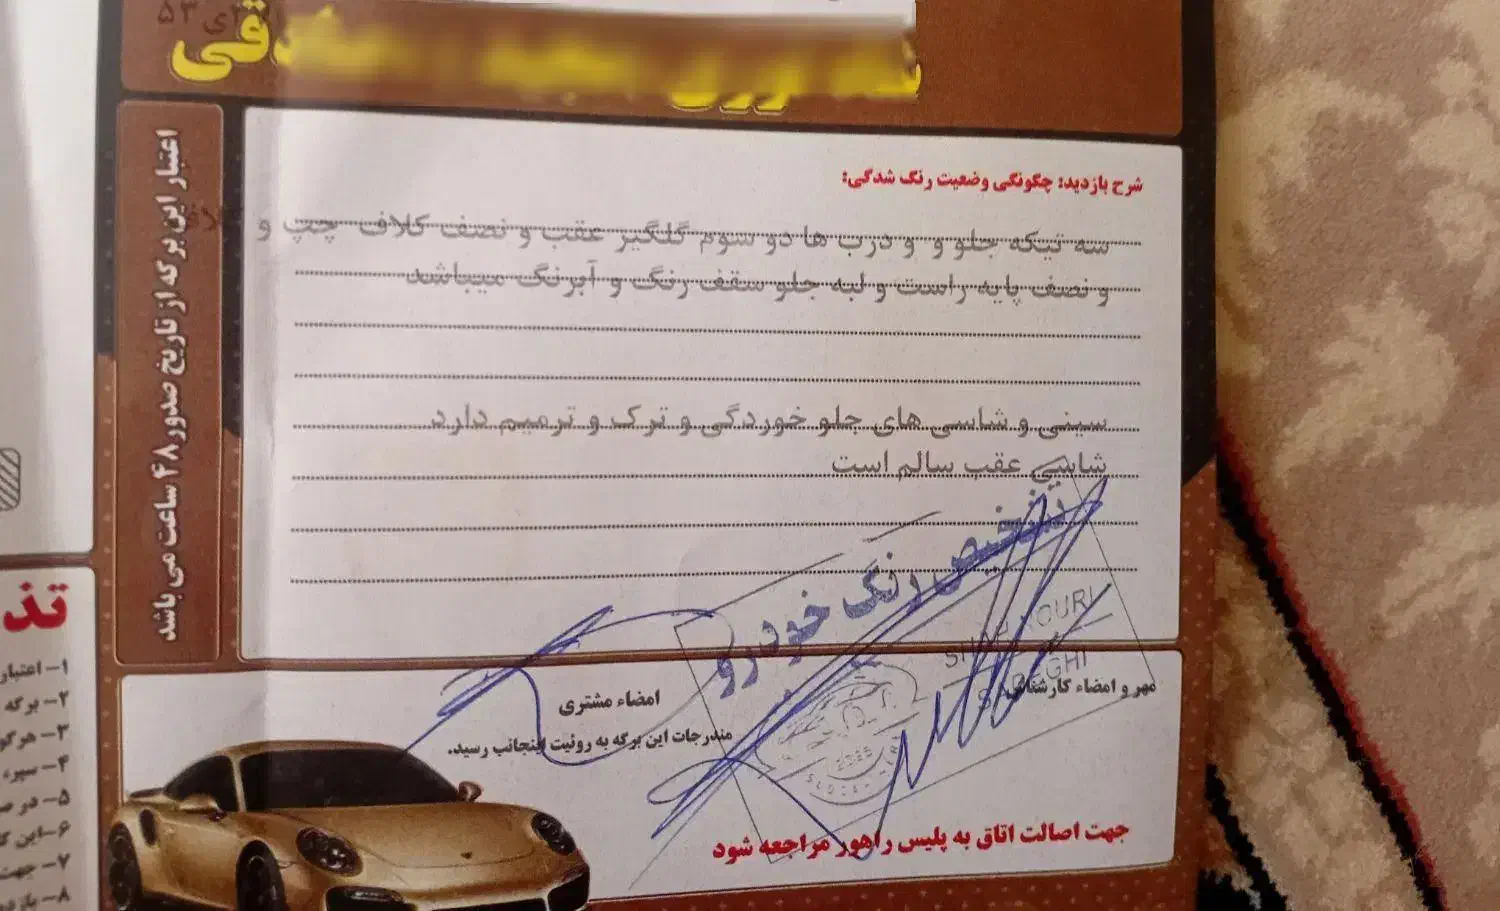 ی ۵۳
شرح بازدید: چگونگی وضعیت رنگ شدگی:
سه تیکه جلو و و درب ها دو سوم گلگیر عقب و نصف کلاف چپ و کلاف
و نصف پایه راست و لبه جلو سقف رنگ و آبرنگ میباشد
سینی و شاسی های جلو خوردگی و ترک و ترمیم دارد
شاسی عقب سالم است
تشخیص رنگ خودرو
NOURI
SADEGHI
مهر و امضاء کارشناس
امضاء مشتری
مندرجات این برگه به روئیت اینجانب رسید.
جهت اصالت اتاق به پلیس راهور مراجعه شود
اعتبار این برگه از تاریخ صدور ۴۸ ساعت می باشد
تذ
۱- اعتبار
۲- برگه
۳- هرگو
۴- سپر،
۵- در ص
۶- این گ
۷- جهت
۸- بازد